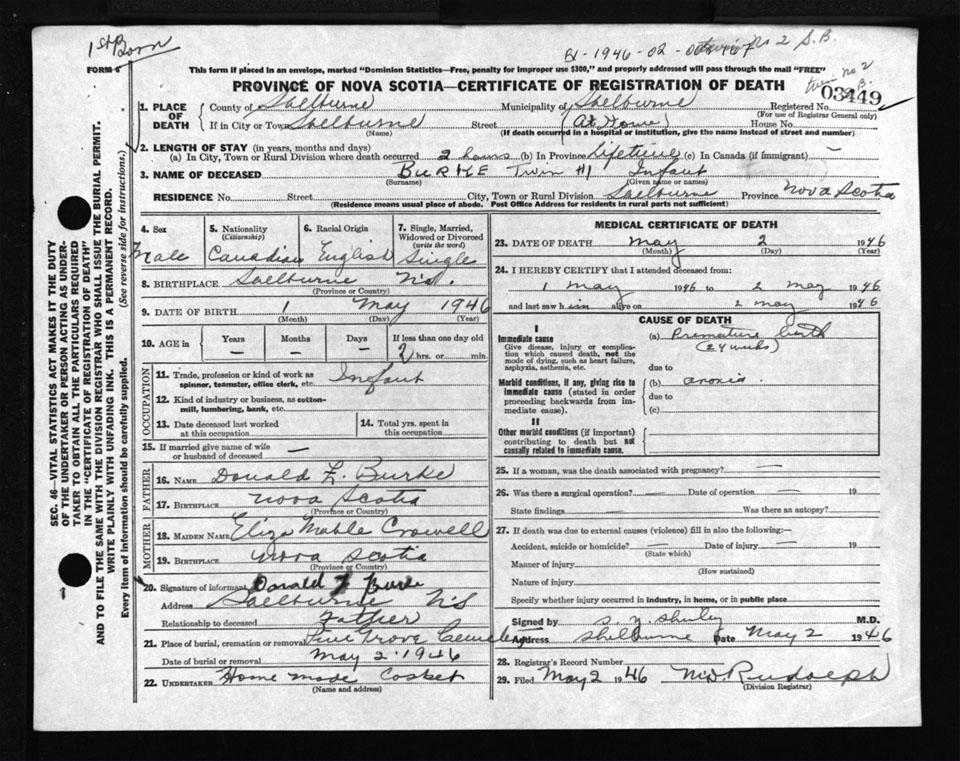 1st Born
B1-1946-02-
No 2 S.B.
FORM 6
This form if placed in an envelope, marked "Dominion Statistics—Free, penalty for improper use $300," and properly addressed will pass through the mail "FREE"
twin no 2
S.B.
PROVINCE OF NOVA SCOTIA—CERTIFICATE OF REGISTRATION OF DEATH
03449
1. PLACE OF DEATH
County of Shelburne Municipality of Shelburne Registered No.
(For use of Registrar General only)
If in City or Town Shelburne Street (At Home) House No.
(Name) (If death occurred in a hospital or institution, give the name instead of street and number)
2. LENGTH OF STAY (in years, months and days)
(a) In City, Town or Rural Division where death occurred 2 hours (b) In Province lifetime (c) In Canada (if immigrant) —
3. NAME OF DECEASED BURKE Twin #1 Infant
(Surname) (Given name or names)
RESIDENCE No. Street City, Town or Rural Division Shelburne Province Nova Scotia
(Residence means usual place of abode. Post Office Address for residents in rural parts not sufficient)
4. Sex 5. Nationality (Citizenship) 6. Racial Origin 7. Single, Married, Widowed or Divorced (write the word)
Male Canadian English Single
8. BIRTHPLACE Shelburne N.S.
(Province or Country)
9. DATE OF BIRTH 1 May 1946
(Month) (Day) (Year)
10. AGE in Years Months Days If less than one day old
— — — 2 hrs. or min.
OCCUPATION
11. Trade, profession or kind of work as spinner, teamster, office clerk, etc. Infant
12. Kind of industry or business, as cotton-mill, lumbering, bank, etc.
13. Date deceased last worked at this occupation
14. Total yrs. spent in this occupation
15. If married give name of wife or husband of deceased —
FATHER
16. NAME Donald F. Burke
17. BIRTHPLACE Nova Scotia
(Province or Country)
MOTHER
18. MAIDEN NAME Eliza Mable Crowell
19. BIRTHPLACE Nova Scotia
(Province or Country)
20. Signature of informant Donald F Burke
Address Shelburne N.S
Relationship to deceased Father
21. Place of burial, cremation or removal Pine Grove
Date of burial or removal May 2 1946
22. UNDERTAKER Home made Casket
(Name and address)
MEDICAL CERTIFICATE OF DEATH
23. DATE OF DEATH May 2 1946
(Month) (Day) (Year)
24. I HEREBY CERTIFY that I attended deceased from:
1 May 1946 to 2 May 1946
and last saw him alive on 2 May 1946
CAUSE OF DEATH
I
Immediate cause
Give disease, injury or complication which caused death, not the mode of dying, such as heart failure, asphyxia, asthenia, etc.
(a) Premature birth
(24 weeks)
due to
Morbid conditions, if any, giving rise to immediate cause (stated in order proceeding backwards from immediate cause).
(b) anoxia.
due to
(c)
II
Other morbid conditions (if important) contributing to death but not causally related to immediate cause.
25. If a woman, was the death associated with pregnancy? —
26. Was there a surgical operation? — Date of operation — 19
State findings — Was there an autopsy?
27. If death was due to external causes (violence) fill in also the following:—
Accident, suicide or homicide? — Date of injury — 19
(State which)
Manner of injury
(How sustained)
Nature of injury
Specify whether injury occurred in industry, in home, or in public place
Signed by M.D.
Address Shelburne Date May 2 1946
28. Registrar's Record Number
29. Filed May 2 1946 Rudolph
(Division Registrar)
SEC. 46—VITAL STATISTICS ACT MAKES IT THE DUTY
OF THE UNDERTAKER OR PERSON ACTING AS UNDER-
TAKER TO OBTAIN ALL THE PARTICULARS REQUIRED
IN THE "CERTIFICATE OF REGISTRATION OF DEATH"
AND TO FILE THE SAME WITH THE DIVISION REGISTRAR WHO SHALL ISSUE THE BURIAL PERMIT.
WRITE PLAINLY WITH UNFADING INK. THIS IS A PERMANENT RECORD.
Every item of information should be carefully supplied. (See reverse side for instructions.)